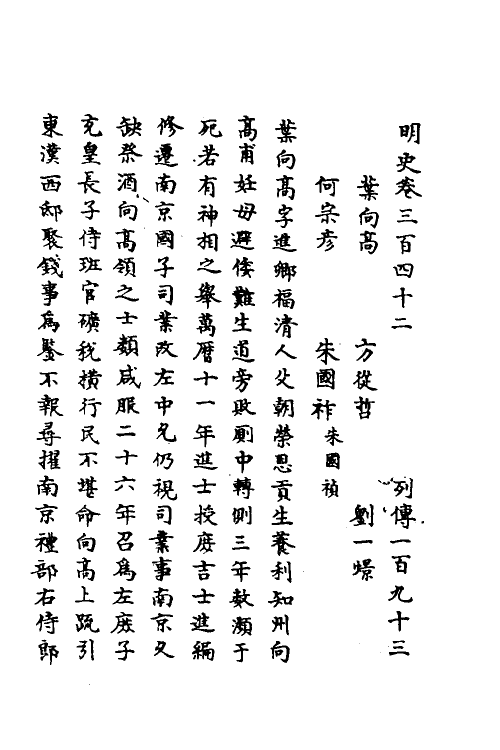 明史卷三百四十二 列傳一百九十三
葉向高 方從哲 劉一燝
何宗彥 朱國祚 朱國禎
葉向高字進卿福清人父朝榮恩貢生養利知州向
高甫妊母避倭難生道旁敗厠中轉側三年數瀕于
死若有神相之舉萬曆十一年進士授庶吉士進編
修遷南京國子司業改左中允仍視司業事南京久
缺祭酒向高領之士類咸服二十六年召爲左庶子
充皇長子侍班官礦税橫行民不堪命向高上疏引
東漢西邸聚錢事爲鑒不報尋擢南京禮部右侍郎